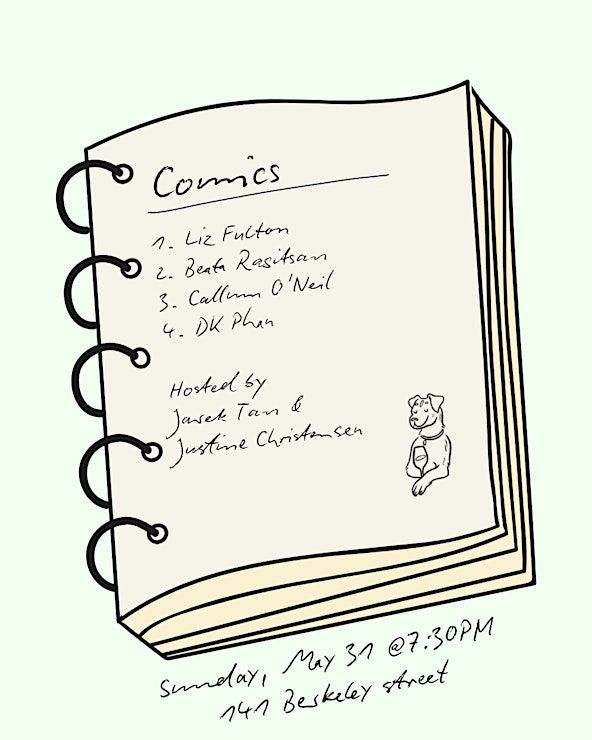 Comics
1. Liz Fulton
2. Beata Rasitsan
3. Callum O'Neil
4. DK Phan
Hosted by
Jarek Tan &
Justine Christensen
Sunday, May 31 @7:30PM
141 Berkeley street